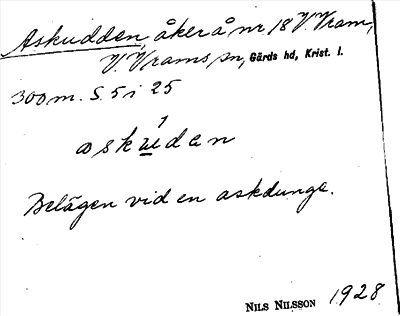 Askudden, åker å nr 18 V. Vram,
V. Vrams sn, Gärds hd, Krist. l.
300 m. S. 5 i 25
askuden
Belägen vid en askdunge.
NILS NILSSON 1928